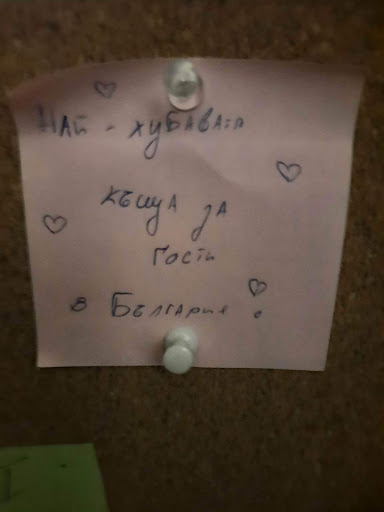 Най-хубавата
къща за
гости
в България!